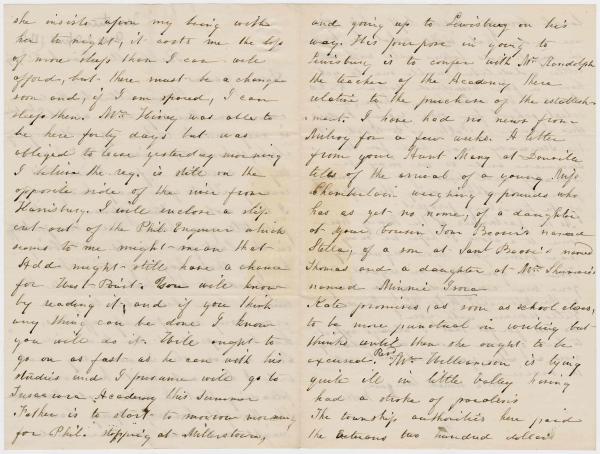 she insists upon my being with
her to night, it costs me the loss
of more sleep than I can well
afford, but there must be a change
soon and, if I am spared, I can
sleep then. Mr. was able to
be here forty days but was
obliged to leave yesterday morning
I believe the reg. is still on the
opposite side of the river from
Harrisburg. I will enclose a slip
cut out of the Phil. Enquirer which
seems to me might mean that
Add might still have a chance
for West Point. You will know
by reading it, and if you think
any thing can be done I know
you will do it. He ought to
go on as fast as he can with his
studies and I presume will go to
Tuscarora Academy this Summer
Father is to start to morrow morning
for Phil. stopping at Millerstown,
and going up to Lewisburg on his
way. His purpose in going to
Lewisburg is to confer with Mr. Randolph
the teacher of the Academy there
relative to the purchase of the establish-
ment. I have had no news from
Milroy for a few weeks. A letter
from your Aunt Mary at Louisville
tells of the arrival of a young Miss
Chamberlain weighing 9 pounds who
has as yet no name, of a daughter
at your Cousin Tom named
Stella, of a son at named
Thomas and a daughter at Mr.
named Minnie
Kate promises, as soon as school closes,
to be more punctual in writing but
thinks until then she ought to be
excused. Rev. Mr. Williamson is lying
quite ill in little Valley having
had a stroke of paralysis
The township authorities here paid
the veterans two hundred dollars